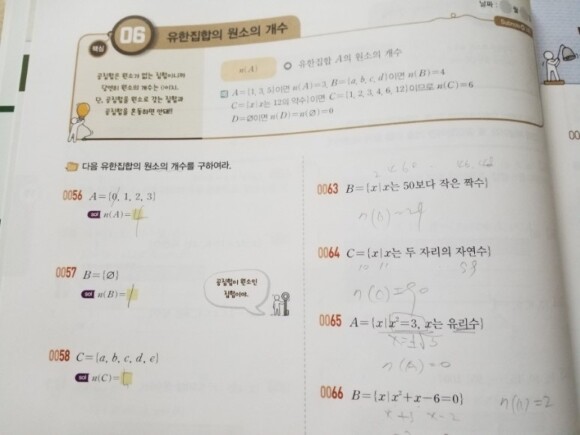 날짜
핵심 06 유한집합의 원소의 개수
공집합은 원소가 없는 집합이니까
당연히 원소의 개수는 0이다.
단, 공집합을 원소로 갖는 집합과
공집합을 혼동하면 안돼!!
n(A) 유한집합 A의 원소의 개수
예 A={1, 3, 5}이면 n(A)=3, B={a, b, c, d}이면 n(B)=4
C={x|x는 12의 약수}이면 C={1, 2, 3, 4, 6, 12}이므로 n(C)=6
D=∅이면 n(D)=n(∅)=0
다음 유한집합의 원소의 개수를 구하여라.
0056 A={0, 1, 2, 3}
sol n(A)=
0057 B={∅}
sol n(B)=
공집합이 원소인
집합이야.
0058 C={a, b, c, d, e}
sol n(C)=
0063 B={x|x는 50보다 작은 짝수}
0064 C={x|x는 두 자리의 자연수}
10 11 99
=90
0065 A={x|x²=3, x는 유리수}
=0
0066 B={x|x²+x-6=0}
n(A)=2
x+3 x-2